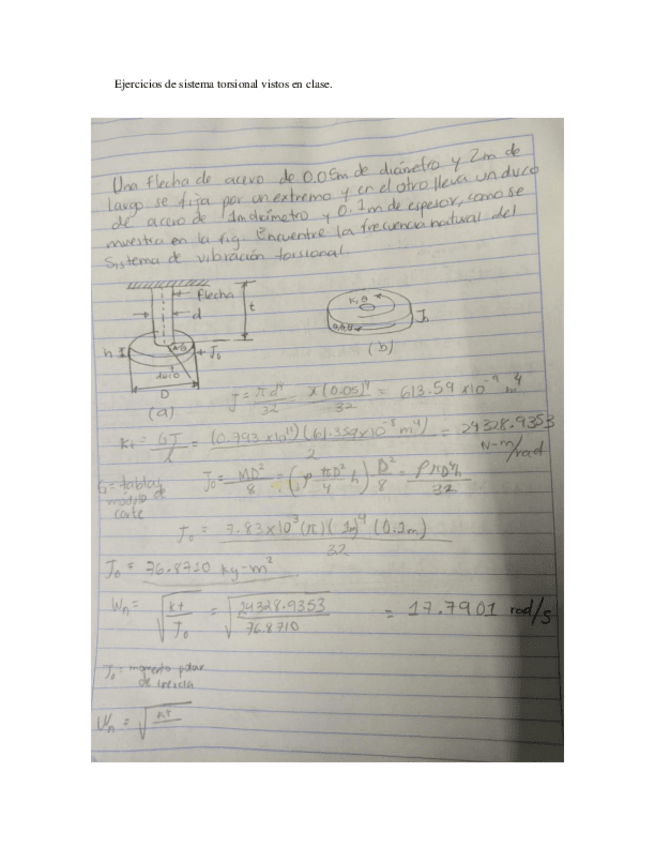 Ejercicios de sistema torsional vistos en clase.
Una flecha de acero de 0.05m de diámetro y 2m de
largo se fija por un extremo y en el otro lleva un disco
de acero de 1m diámetro y 0.1m de espesor, como se
muestra en la fig. Encuentre la frecuencia natural del
Sistema de vibración torsional.
flecha
d
t
h
J₀
D
(a)
(b)
J = πd⁴/32 = π(0.05)⁴/32 = 613.59 x10⁻⁹ m⁴
Kt = GJ/l = (0.793 x10¹¹)(61.359x10⁻⁸ m⁴)/2 = 24328.9353 N-m/rad
G = tablas
módulo de
corte
J₀ = MD²/8 = (ρ πD²/4 h) D²/8 = ρπD⁴h/32
J₀ = 7.83x10³(π)(1m)⁴(0.1m)/32
J₀ = 76.8710 kg-m²
Wn = √(kt/J₀) = √(24328.9353/76.8710) = 17.7901 rad/s
J₀ = momento polar
de inercia
Wn = √(kt